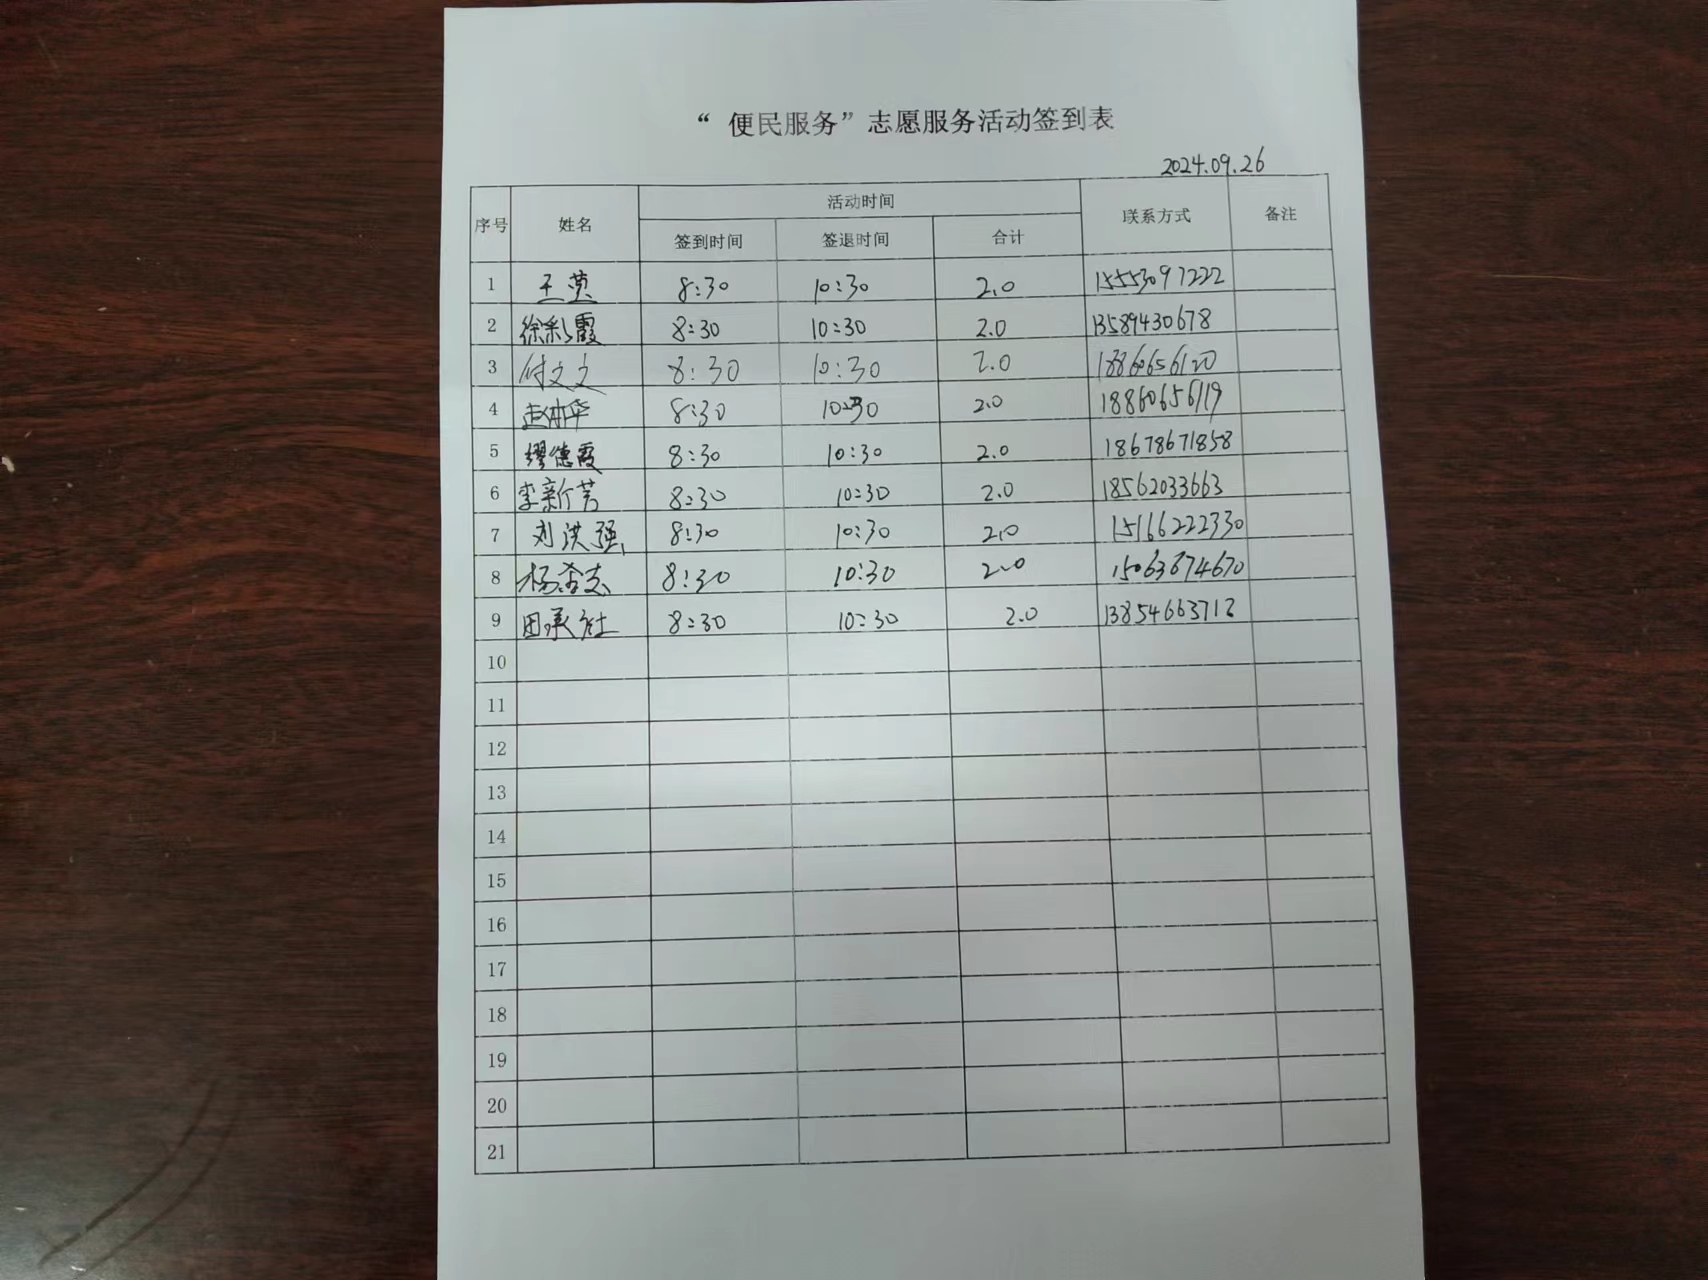 “ 便民服务” 志愿服务活动签到表
2024.09.26
序号 姓名 活动时间 联系方式 备注
签到时间 签退时间 合计
1 王英 8:30 10:30 2.0 15553097222
2 徐彩霞 8:30 10:30 2.0 13589430678
3 付文文 8:30 10:30 2.0 18860656120
4 8:30 10:30 2.0 18860656119
5 缪德霞 8:30 10:30 2.0 18678671858
6 李新芳 8:30 10:30 2.0 18562033663
7 刘洪强 8:30 10:30 2.0 15166222330
8 8:30 10:30 2.0 15063674670
9 8:30 10:30 2.0 13854663712
10
11
12
13
14
15
16
17
18
19
20
21